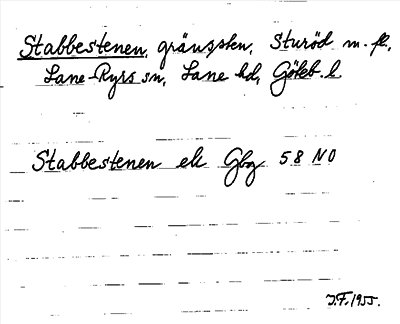 Stabbestenen, gränssten, Sturöd m. fl.,
Lane-Ryrs sn, Lane hd, Göteb. l.
Stabbestenen ek Gbg 58 NO
J.F. 1955.